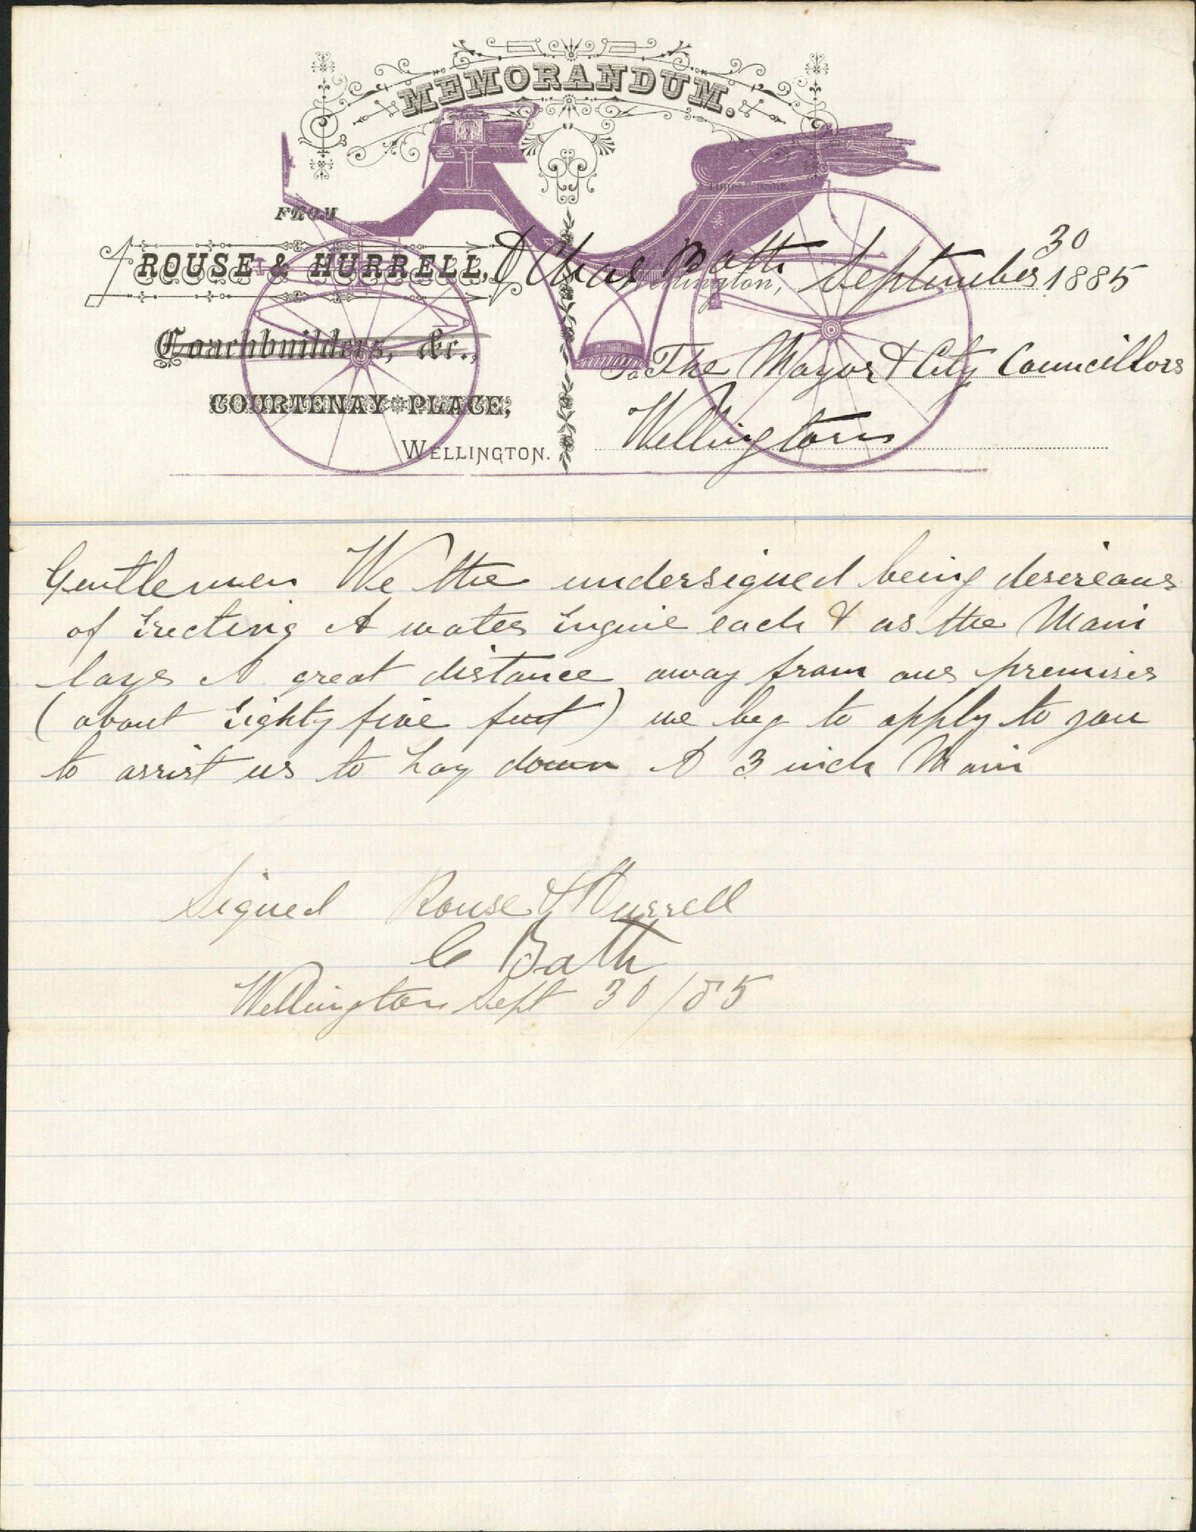 MEMORANDUM.
FROM
ROUSE & HURRELL, & Chas Bath
Wellington, September 30 1885
Coachbuilders, &c.,
To The Mayor & City Councillors
COURTENAY PLACE,
WELLINGTON.
Wellington
Gentlemen We the undersigned being desireous
of Erecting A water Engine each & as the Main
lays A great distance away from our premises
(about Eighty five feet) we beg to apply to you
to assist us to Lay down A 3 inch Main
Signed Rouse & Hurrell
C Bath
Wellington Sept 30/85